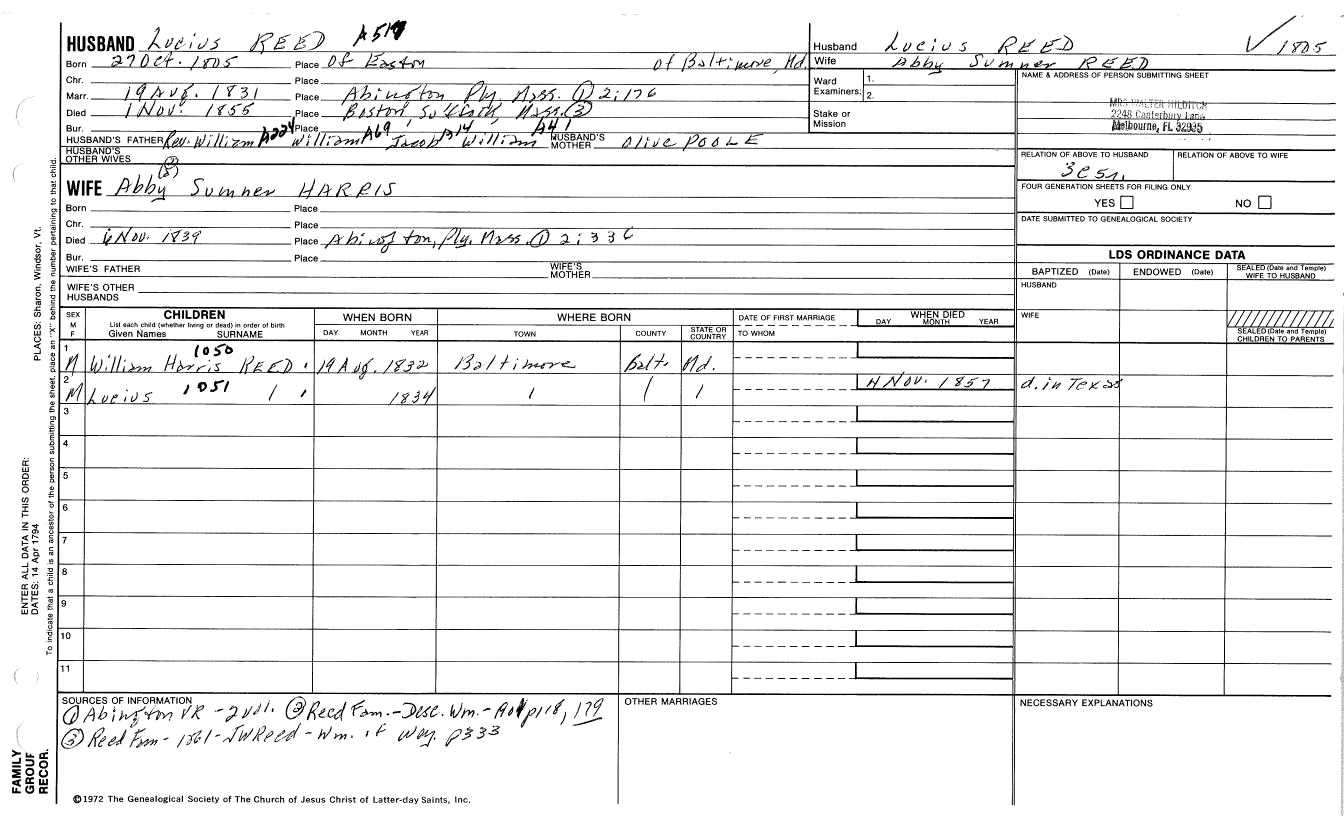 HUSBAND Lucius REED A517
Born 27 Oct. 1805 Place Of Easton of Baltimore, Md.
Chr. Place
Marr. 19 Aug. 1831 Place Abington Ply. Mass. ① 2:176
Died 1 Nov. 1855 Place Boston, Suffolk, Mass. ③
Bur. Place
HUSBAND'S FATHER Rev. William A224 William A69 Jacob A14 William A41 HUSBAND'S MOTHER Olive POOLE
HUSBAND'S OTHER WIVES
Husband Lucius REED √ 1805
Wife Abby Sumner REED
Ward Examiners: 1.
2.
Stake or Mission
NAME & ADDRESS OF PERSON SUBMITTING SHEET
MRS WALTER HILDITCH
2248 Canterbury Lane
Melbourne, FL 32935
RELATION OF ABOVE TO HUSBAND RELATION OF ABOVE TO WIFE
3C5r.
FOUR GENERATION SHEETS FOR FILING ONLY
YES NO
DATE SUBMITTED TO GENEALOGICAL SOCIETY
WIFE Abby Sumner HARRIS
Born Place
Chr. Place
Died 6 Nov. 1839 Place Abington, Ply. Mass. ① 2:336
Bur. Place
WIFE'S FATHER WIFE'S MOTHER
WIFE'S OTHER HUSBANDS
LDS ORDINANCE DATA
BAPTIZED (Date) ENDOWED (Date) SEALED (Date and Temple) WIFE TO HUSBAND
HUSBAND
WIFE
SEALED (Date and Temple) CHILDREN TO PARENTS
SEX M F CHILDREN List each child (whether living or dead) in order of birth Given Names SURNAME
WHEN BORN DAY MONTH YEAR
WHERE BORN TOWN COUNTY STATE OR COUNTRY
DATE OF FIRST MARRIAGE TO WHOM
WHEN DIED DAY MONTH YEAR
1 M William Harris REED 1050 19 Aug. 1832 Baltimore Balt. Md.
2 M Lucius 1051 " 1834 " " " 4 Nov. 1857 d. in Texas
3
4
5
6
7
8
9
10
11
SOURCES OF INFORMATION
① Abington VR - 2 vol. ② Reed Fam. - Desc. Wm. - p118, 179
③ Reed Fam - 1861 - JWReed - Wm. of Wey. p333
OTHER MARRIAGES
NECESSARY EXPLANATIONS
©1972 The Genealogical Society of The Church of Jesus Christ of Latter-day Saints, Inc.
FAMILY GROUP RECOR.
ENTER ALL DATA IN THIS ORDER:
DATES: 14 Apr 1794
PLACES: Sharon, Windsor, Vt.
To indicate that a child is an ancestor of the person submitting the sheet, place an "X" behind the number pertaining to that child.